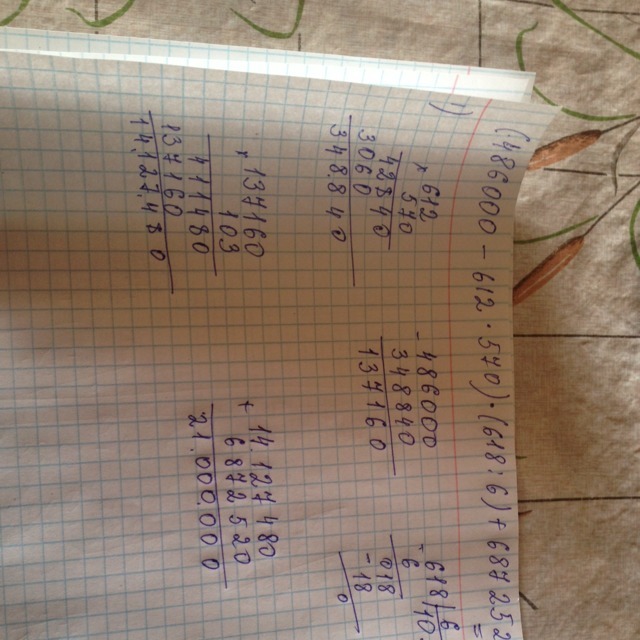 (486000 - 612 · 570) · (618 : 6) + 687 252
=
1)
× 612
570
4284 0
3060
348840
- 486000
348840
137160
618 | 6
- 6
10
018
- 18
0
× 137160
103
411480
137160
14.127.480
+ 14.127 480
6 872 520
21.000000